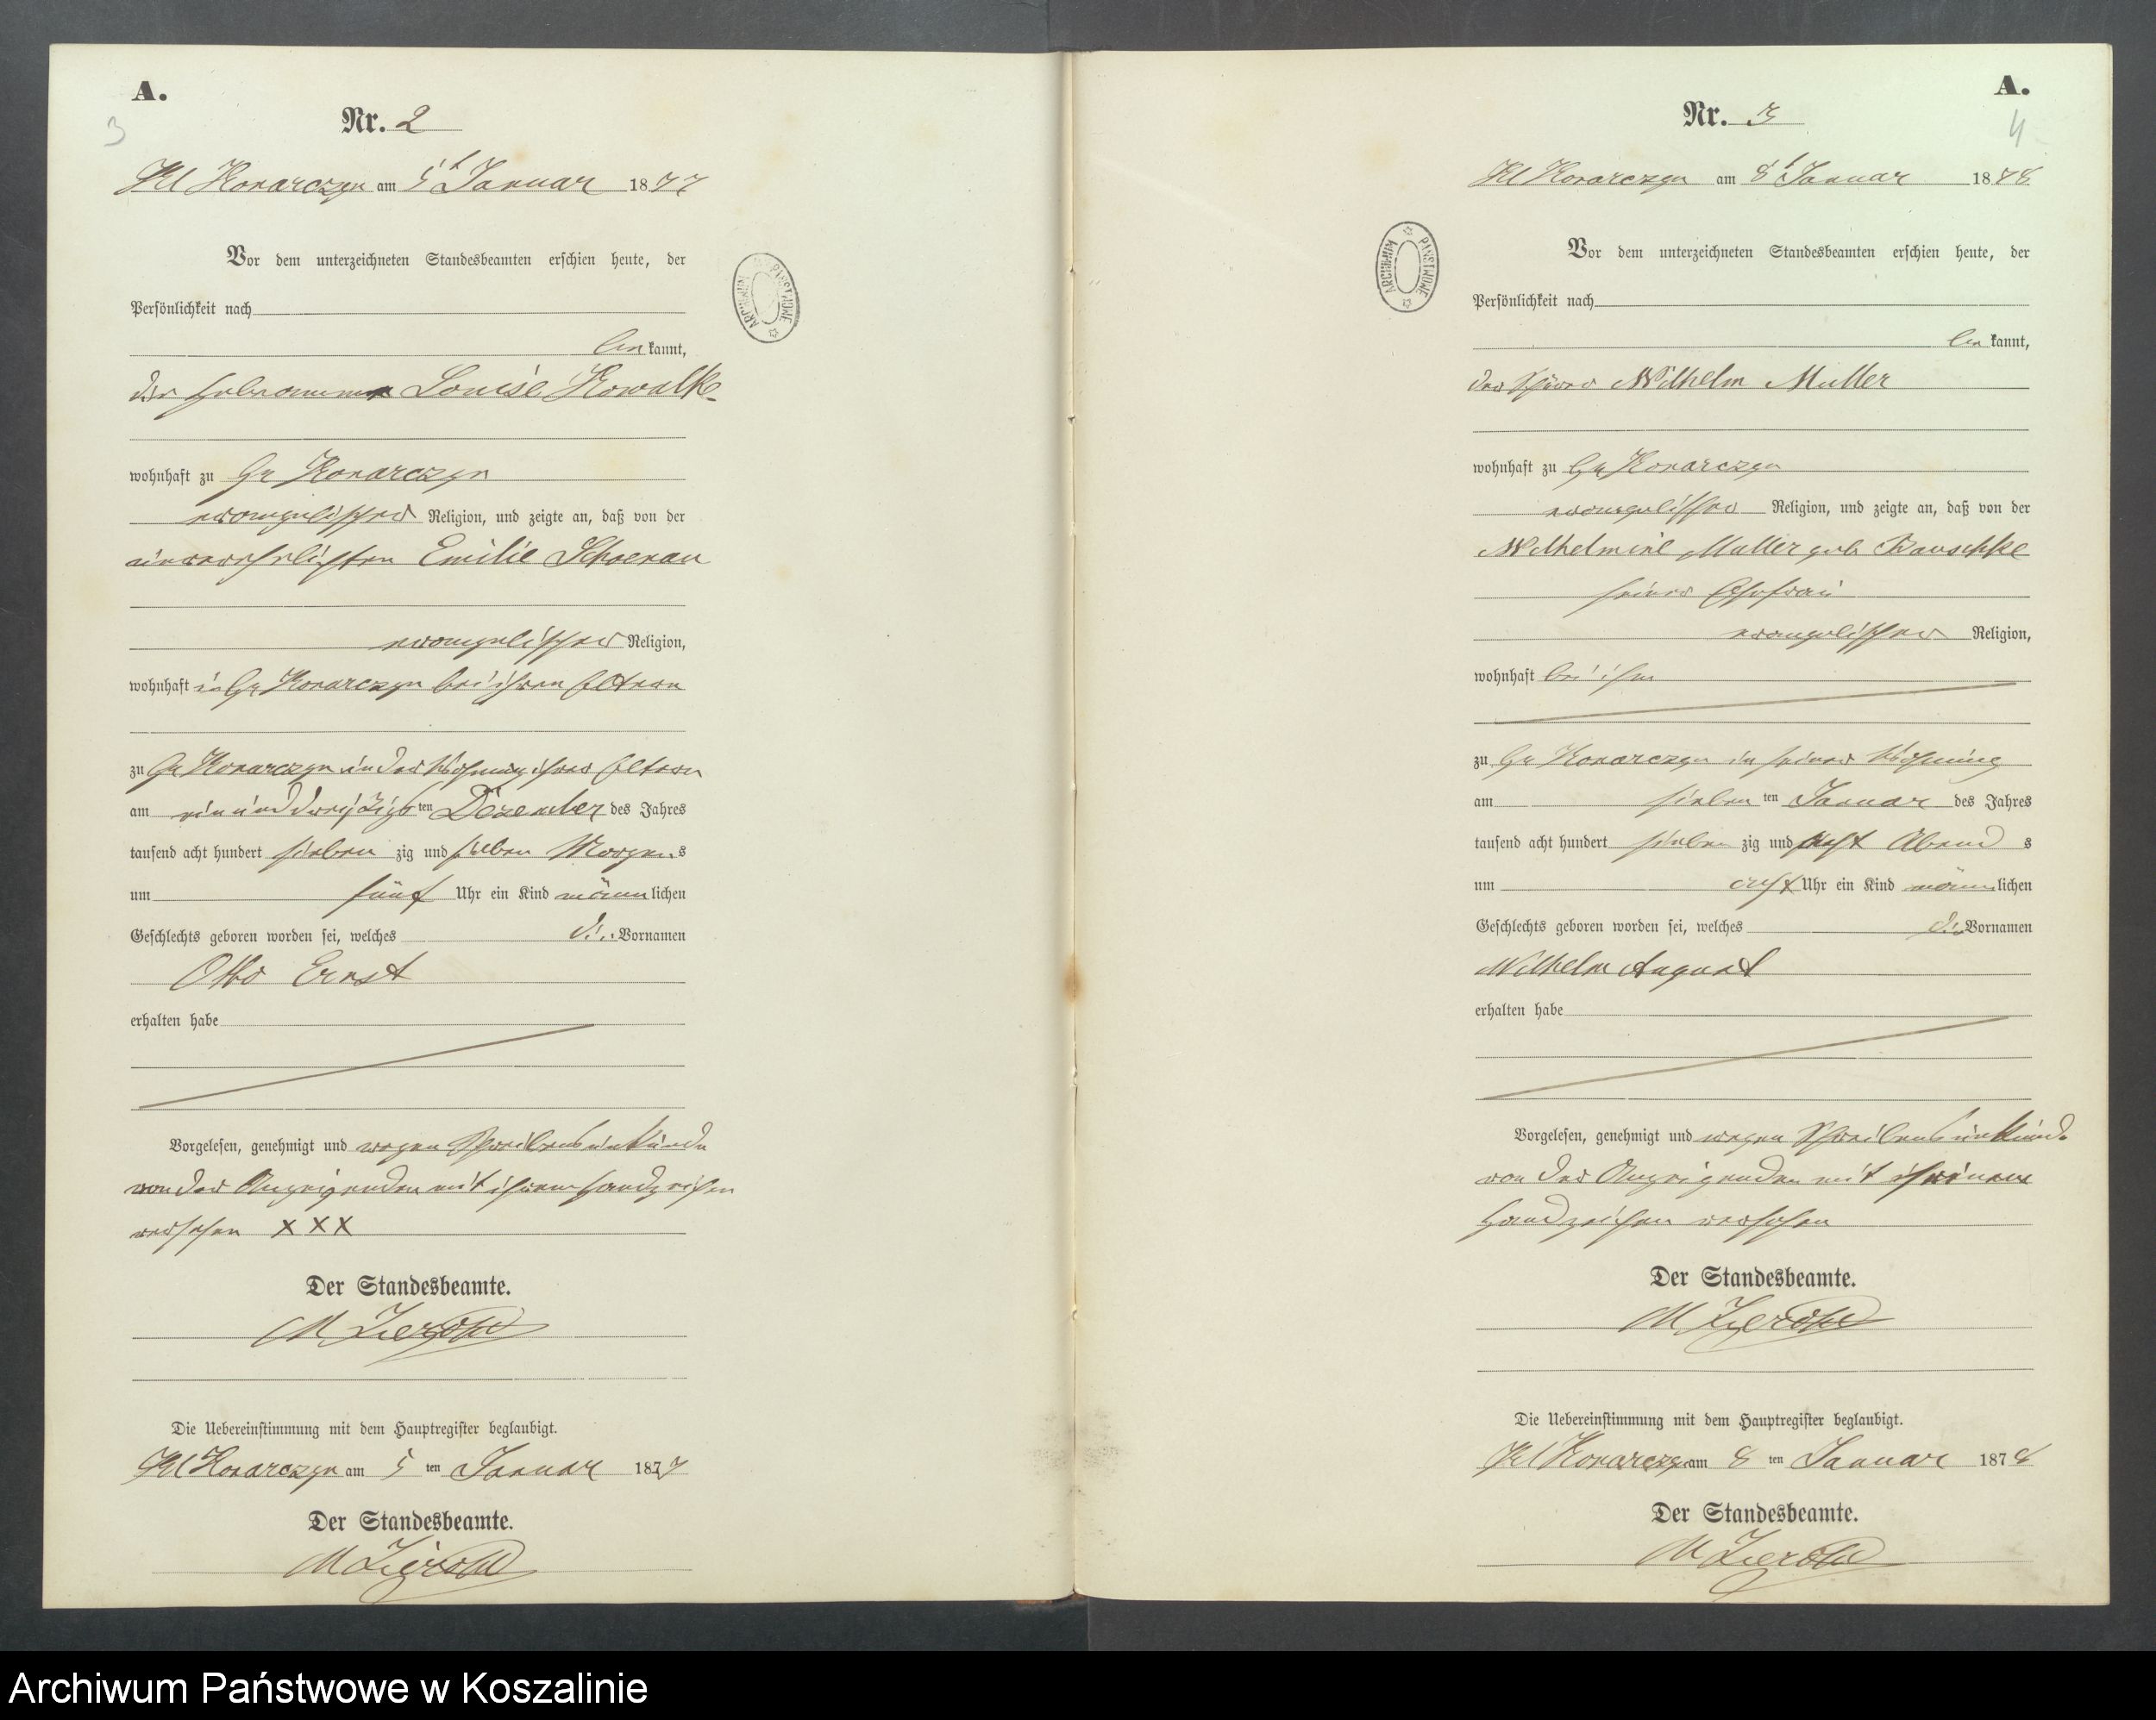 A.
3
Nr. 2
Kl Konarczyn am 5t Januar 1877
Vor dem unterzeichneten Standesbeamten erschien heute, der
Persönlichkeit nach
be kannt,
die Hebeamme Louise Kowalke
wohnhaft zu Gr Konarczyn
evangelischer Religion, und zeigte an, daß von der
unverehelichten Emilie Schoenau
evangelischer Religion,
wohnhaft in Gr Konarczyn bei ihren Eltern
zu Gr Konarczyn in der Wohnung ihrer Eltern
am ein und dreizigs ten Dezember des Jahres
tausend acht hundert sieben zig und sieben Morgens
um fünf Uhr ein Kind männlichen
Geschlechts geboren worden sei, welches die Vornamen
Otto Ernst
erhalten habe
Vorgelesen, genehmigt und wegen Schreibensunkunde
von der Anzeigenden mit ihrem Handzeichen
versehen XXX
Der Standesbeamte.
Die Uebereinstimmung mit dem Hauptregister beglaubigt.
Kl Konarczyn am 5 ten Januar 1877
Der Standesbeamte.
A.
4
Nr. 3
Kl Konarczyn am 8t Januar 1878
Vor dem unterzeichneten Standesbeamten erschien heute, der
Persönlichkeit nach
be kannt,
der Wilhelm Muller
wohnhaft zu Gr Konarczyn
evangelischer Religion, und zeigte an, daß von der
Wilhelmine Muller geb Bauschke
seiner Ehefrau
evangelischer Religion,
wohnhaft bei ihm
zu Gr Konarczyn in seiner Wohnung
am sieben ten Januar des Jahres
tausend acht hundert sieben zig und acht Abend s
um acht Uhr ein Kind männlichen
Geschlechts geboren worden sei, welches die Vornamen
Wilhelm August
erhalten habe
Vorgelesen, genehmigt und wegen Schreibensunkunde
von der Anzeigenden mit seinem
Handzeichen versehen
Der Standesbeamte.
Die Uebereinstimmung mit dem Hauptregister beglaubigt.
Kl Konarczyn am 8 ten Januar 1878
Der Standesbeamte.
ARCHIWUM PAŃSTWOWE
ARCHIWUM PAŃSTWOWE
Archiwum Państwowe w Koszalinie